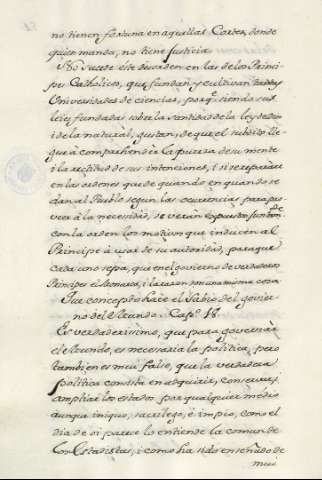 no tienen fortuna en aquellas Cortes, donde
quien manda, no tiene Justicia.
No sucede este desorden en las de los Princi-
pes Catholicos, que fundan, y cultivan tantas
Universidades de ciencias, porq. siendo sus
leies fundadas sobre la santidad de la ley de Dios
i de la natural, gustan, de que el subdito lle-
gue à comprehender la pureza de su mente
i la rectitud de sus intenciones, i si se repàrare
en las ordenes que de quando en quando se
dan al Pueblo segun las ocurrencias para pro-
veer à la necesidad, se veràn
con la orden los motivos que inducen al
Principe à usar de su autoridad, para que
cada uno sepa, que en el govierno de verdaderos
Principes el Monarca, i la razon son una misma cosa.
Que concepto hace el Sabio del govier-
no del Mundo. Cap.o 18.
Es verdaderissimo, que para governar
el Mundo, es necesaria la politica, pero
tambien es mui falso, que la verdadera
politica consista en adquirir, conservar, i
ampliar los estados por qualquier medio
aunque iniquo, sacrilego, è impio, como el
dia de oi parece lo entiende la comun de
los Estadistas, i como ha sido enseñado de
mui